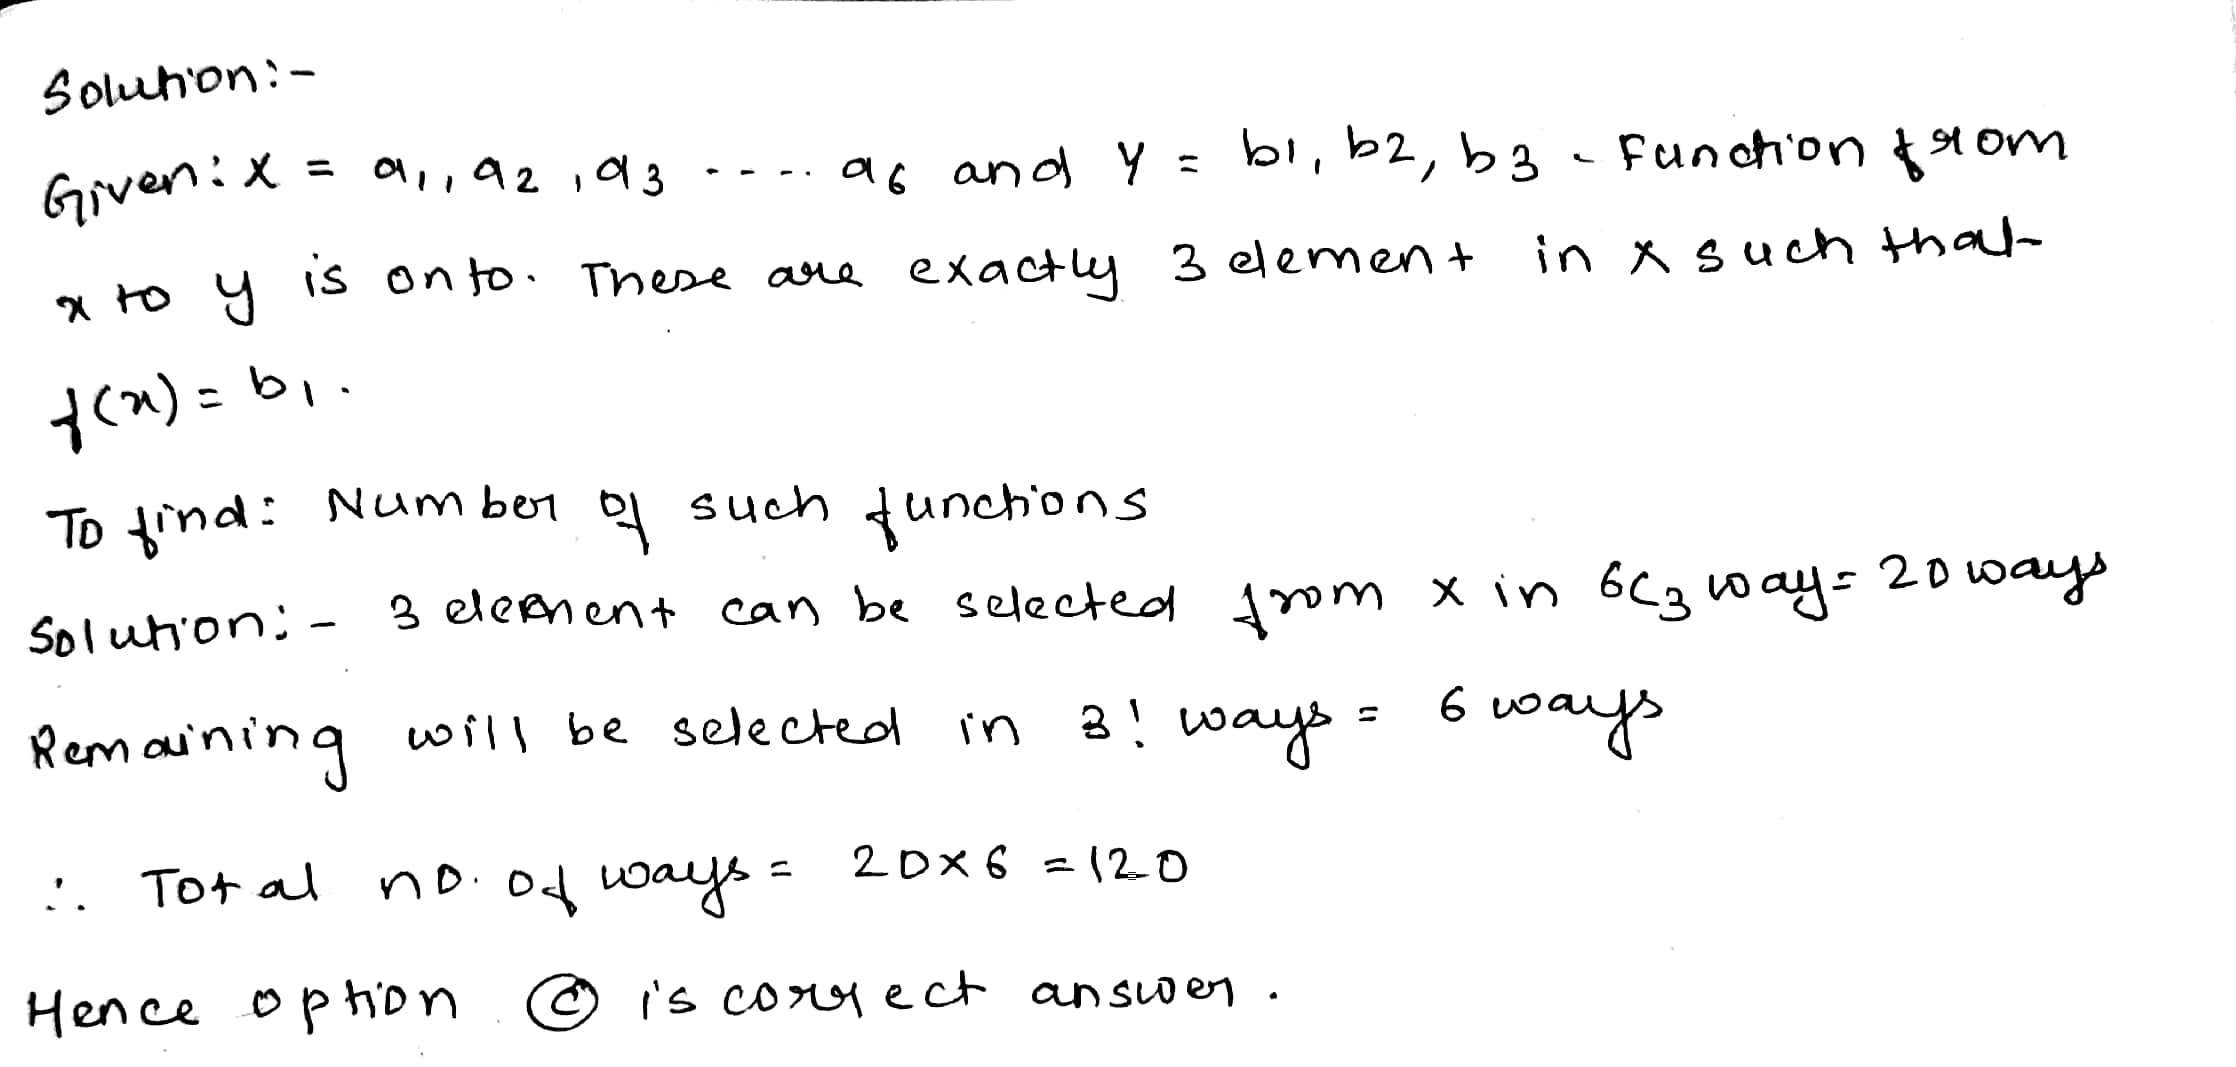 Solution:-
Given: X = a1, a2, a3 ----. a6 and Y = b1, b2, b3 - Function from
x to y is onto. These are exactly 3 element in x such that
f(x) = b1.
To find: Number of such functions
Solution:- 3 element can be selected from x in 6C3 way = 20 ways
Remaining will be selected in 3! ways = 6 ways
∴ Total no. of ways = 20×6 = 120
Hence option ⓒ is correct answer.